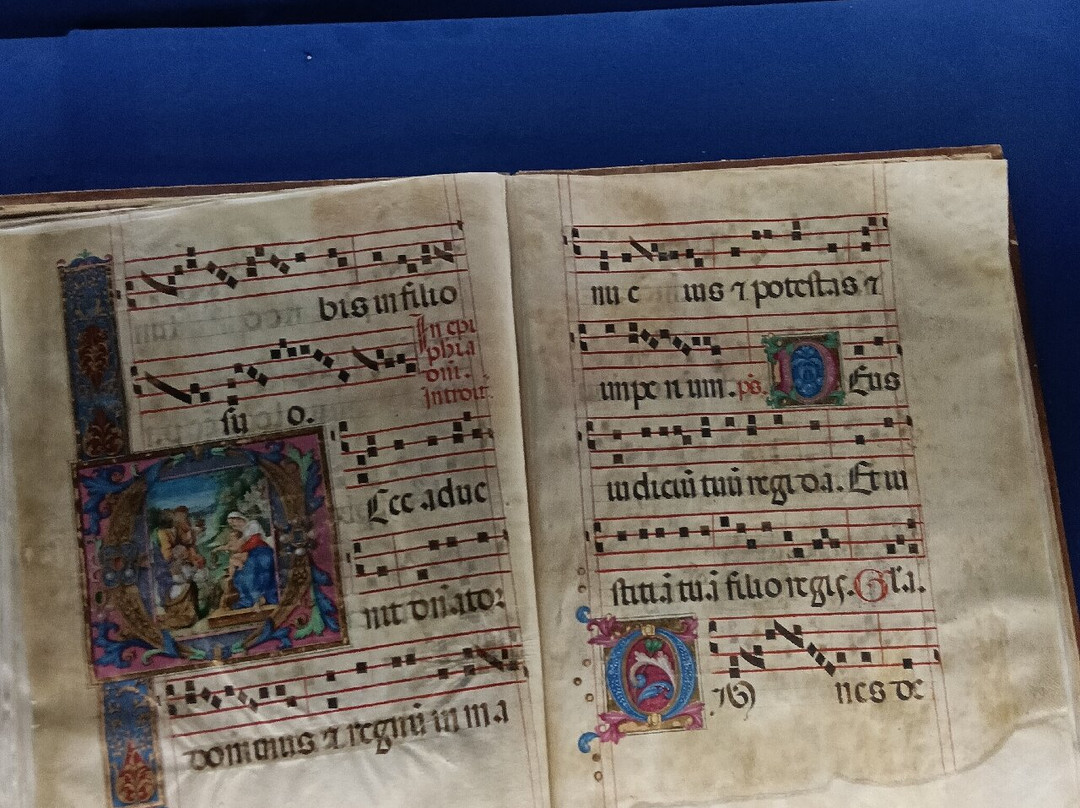 bis in filio
su o.
In epi
phia
om̄.
introit.
Ecce aduc
nit dn̄ator
dominus ⁊ regnū in ma
nu e ius ⁊ potestas ⁊
impe ri um. ps. D Eus
iudiciū tuū regi da. Et iu
stitiā tuā filio regis. Gl̄a.
O M nes de